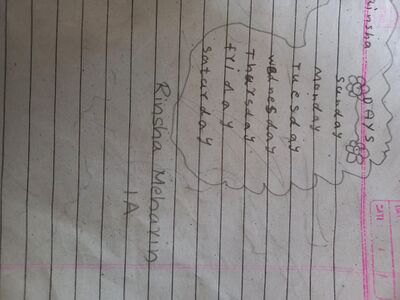 Rinsha
DAYS
Sunday
Monday
Tuesday
wednesday
Thursday
friday
saturday
Rinsha Meharin
1A